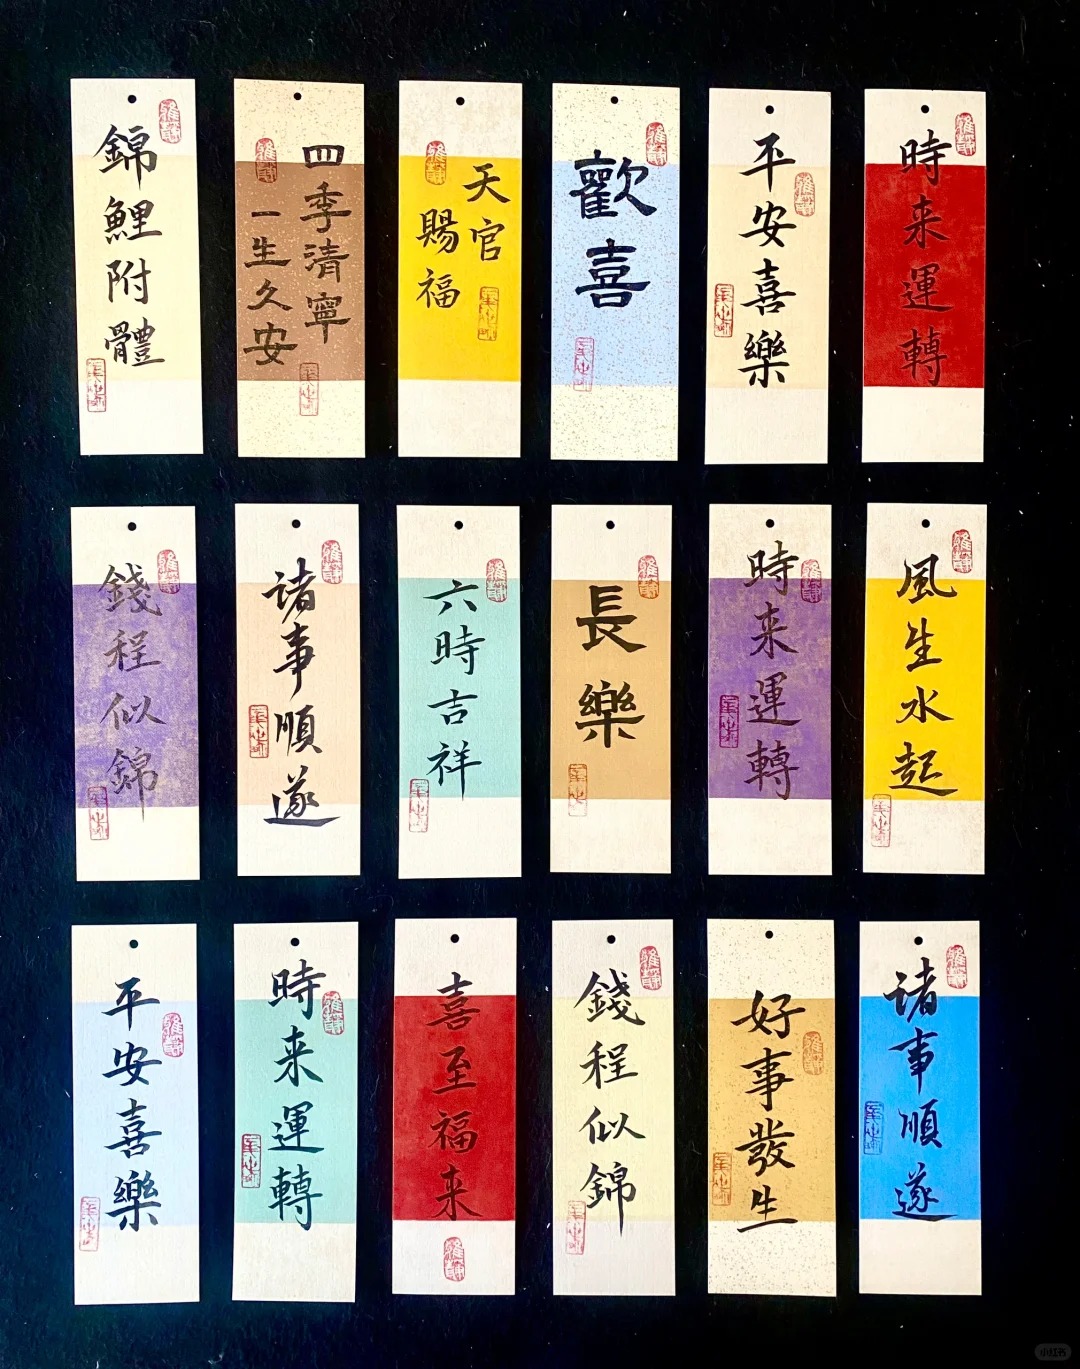 錦鯉附體
四季清寧
一生久安
天官
賜福
歡喜
平安喜樂
時来運轉
錢程似錦
诸事順遂
六時吉祥
長樂
時来運轉
風生水起
平安喜樂
時来運轉
喜至福来
錢程似錦
好事發生
诸事順遂
小红书